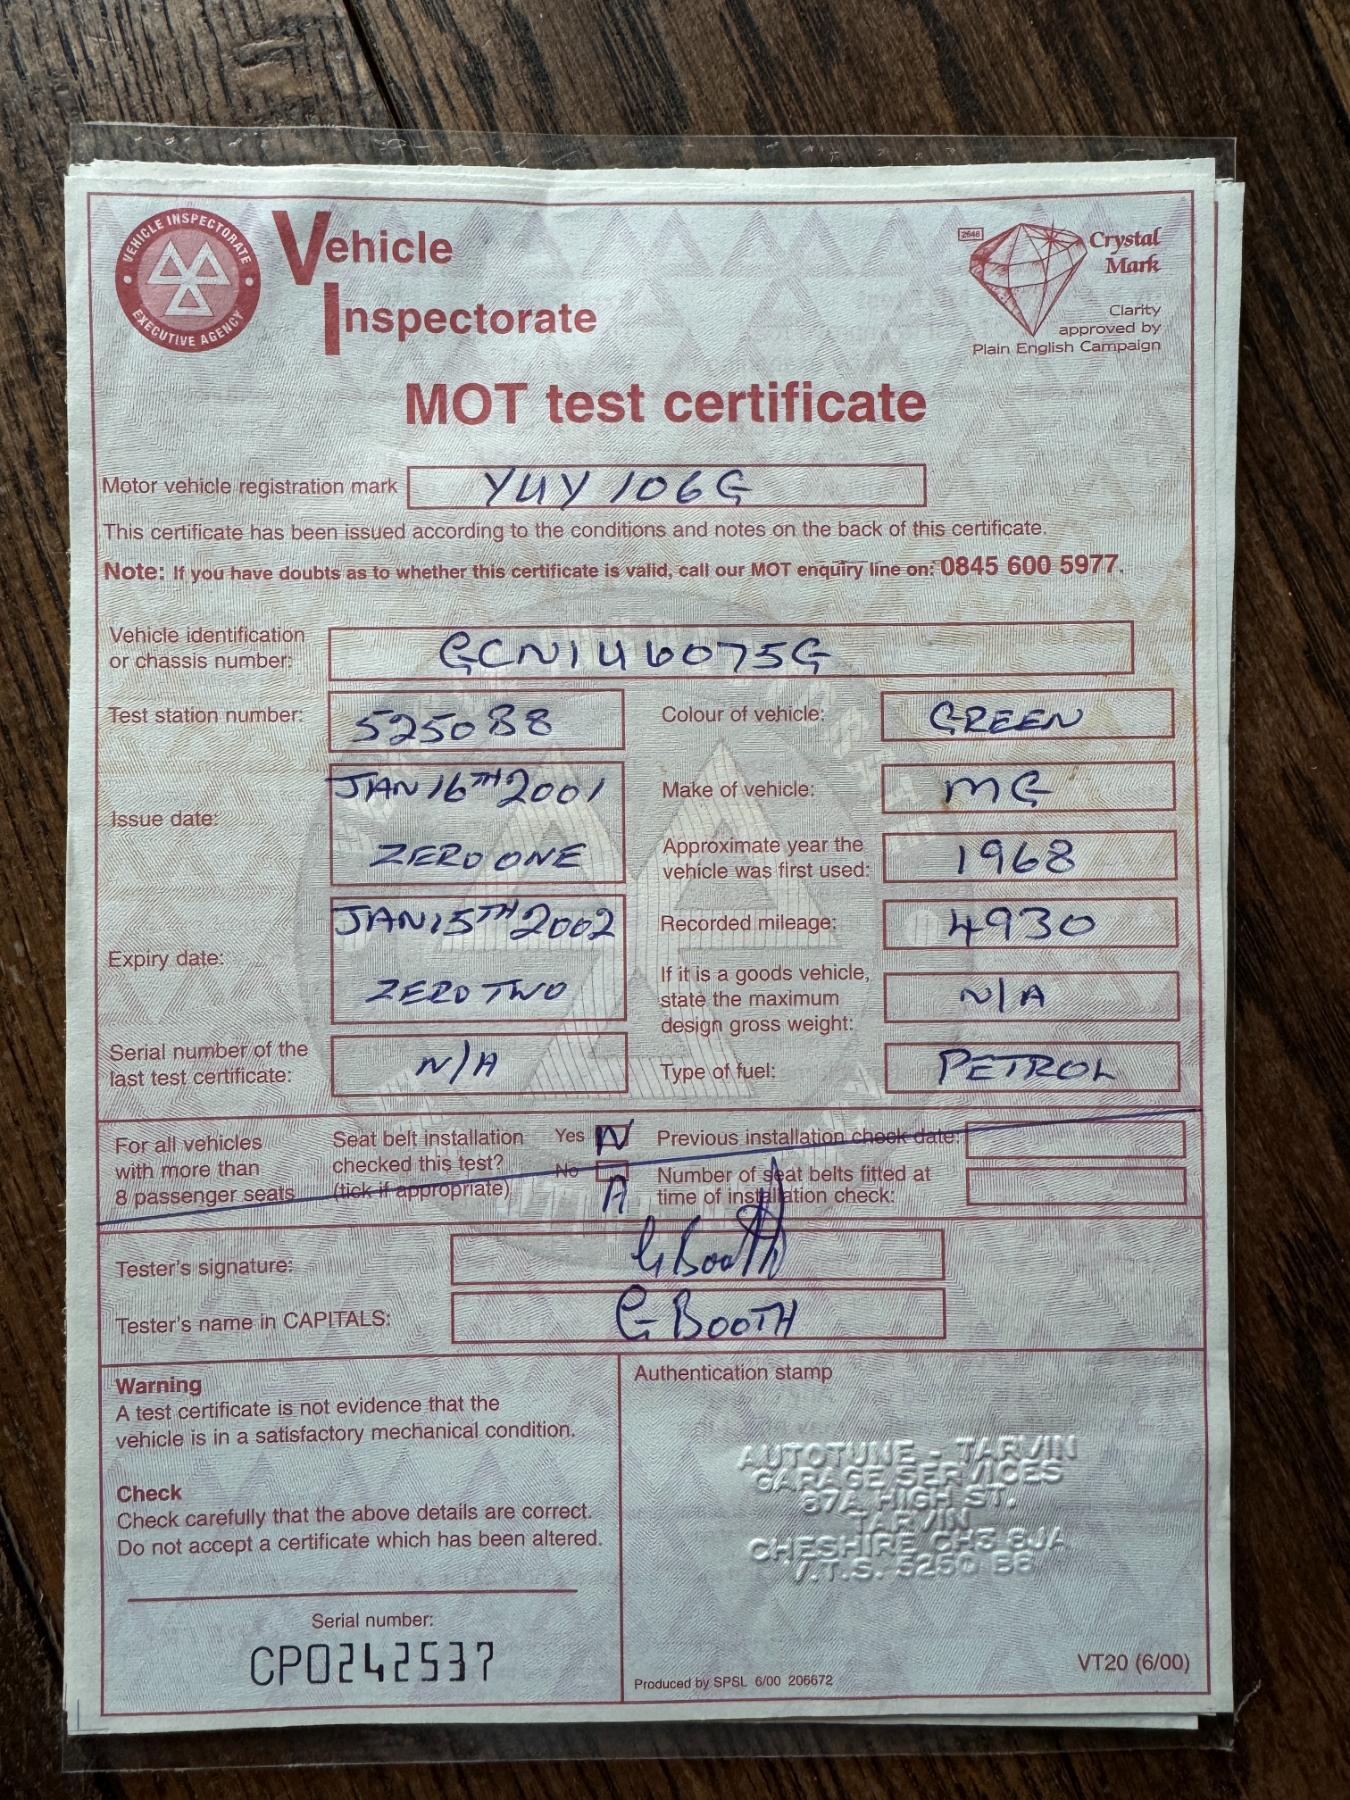 VEHICLE INSPECTORATE
EXECUTIVE AGENCY
Vehicle
Inspectorate
2646
Crystal
Mark
Clarity
approved by
Plain English Campaign
MOT test certificate
Motor vehicle registration mark YUY 106G
This certificate has been issued according to the conditions and notes on the back of this certificate.
Note: If you have doubts as to whether this certificate is valid, call our MOT enquiry line on: 0845 600 5977.
Vehicle identification
or chassis number: GCN1U6075G
Test station number: 5250B8
Colour of vehicle: GREEN
Issue date: JAN 16TH 2001
ZERO ONE
Make of vehicle: MG
Approximate year the
vehicle was first used: 1968
Expiry date: JAN 15TH 2002
ZERO TWO
Recorded mileage: 4930
If it is a goods vehicle,
state the maximum
design gross weight: N/A
Serial number of the
last test certificate: N/A
Type of fuel: PETROL
For all vehicles
with more than
8 passenger seats
Seat belt installation
checked this test?
(tick if appropriate)
Yes N
No A
Previous installation check date:
Number of seat belts fitted at
time of installation check:
Tester's signature: G Booth
Tester's name in CAPITALS: G BOOTH
Warning
A test certificate is not evidence that the
vehicle is in a satisfactory mechanical condition.
Check
Check carefully that the above details are correct.
Do not accept a certificate which has been altered.
Serial number:
CP0242537
Authentication stamp
AUTOTUNE - TARVIN
GARAGE SERVICES
87A HIGH ST.
TARVIN
CHESHIRE CH3 8JA
V.T.S. 5250 B8
Produced by SPSL 6/00 206672
VT20 (6/00)